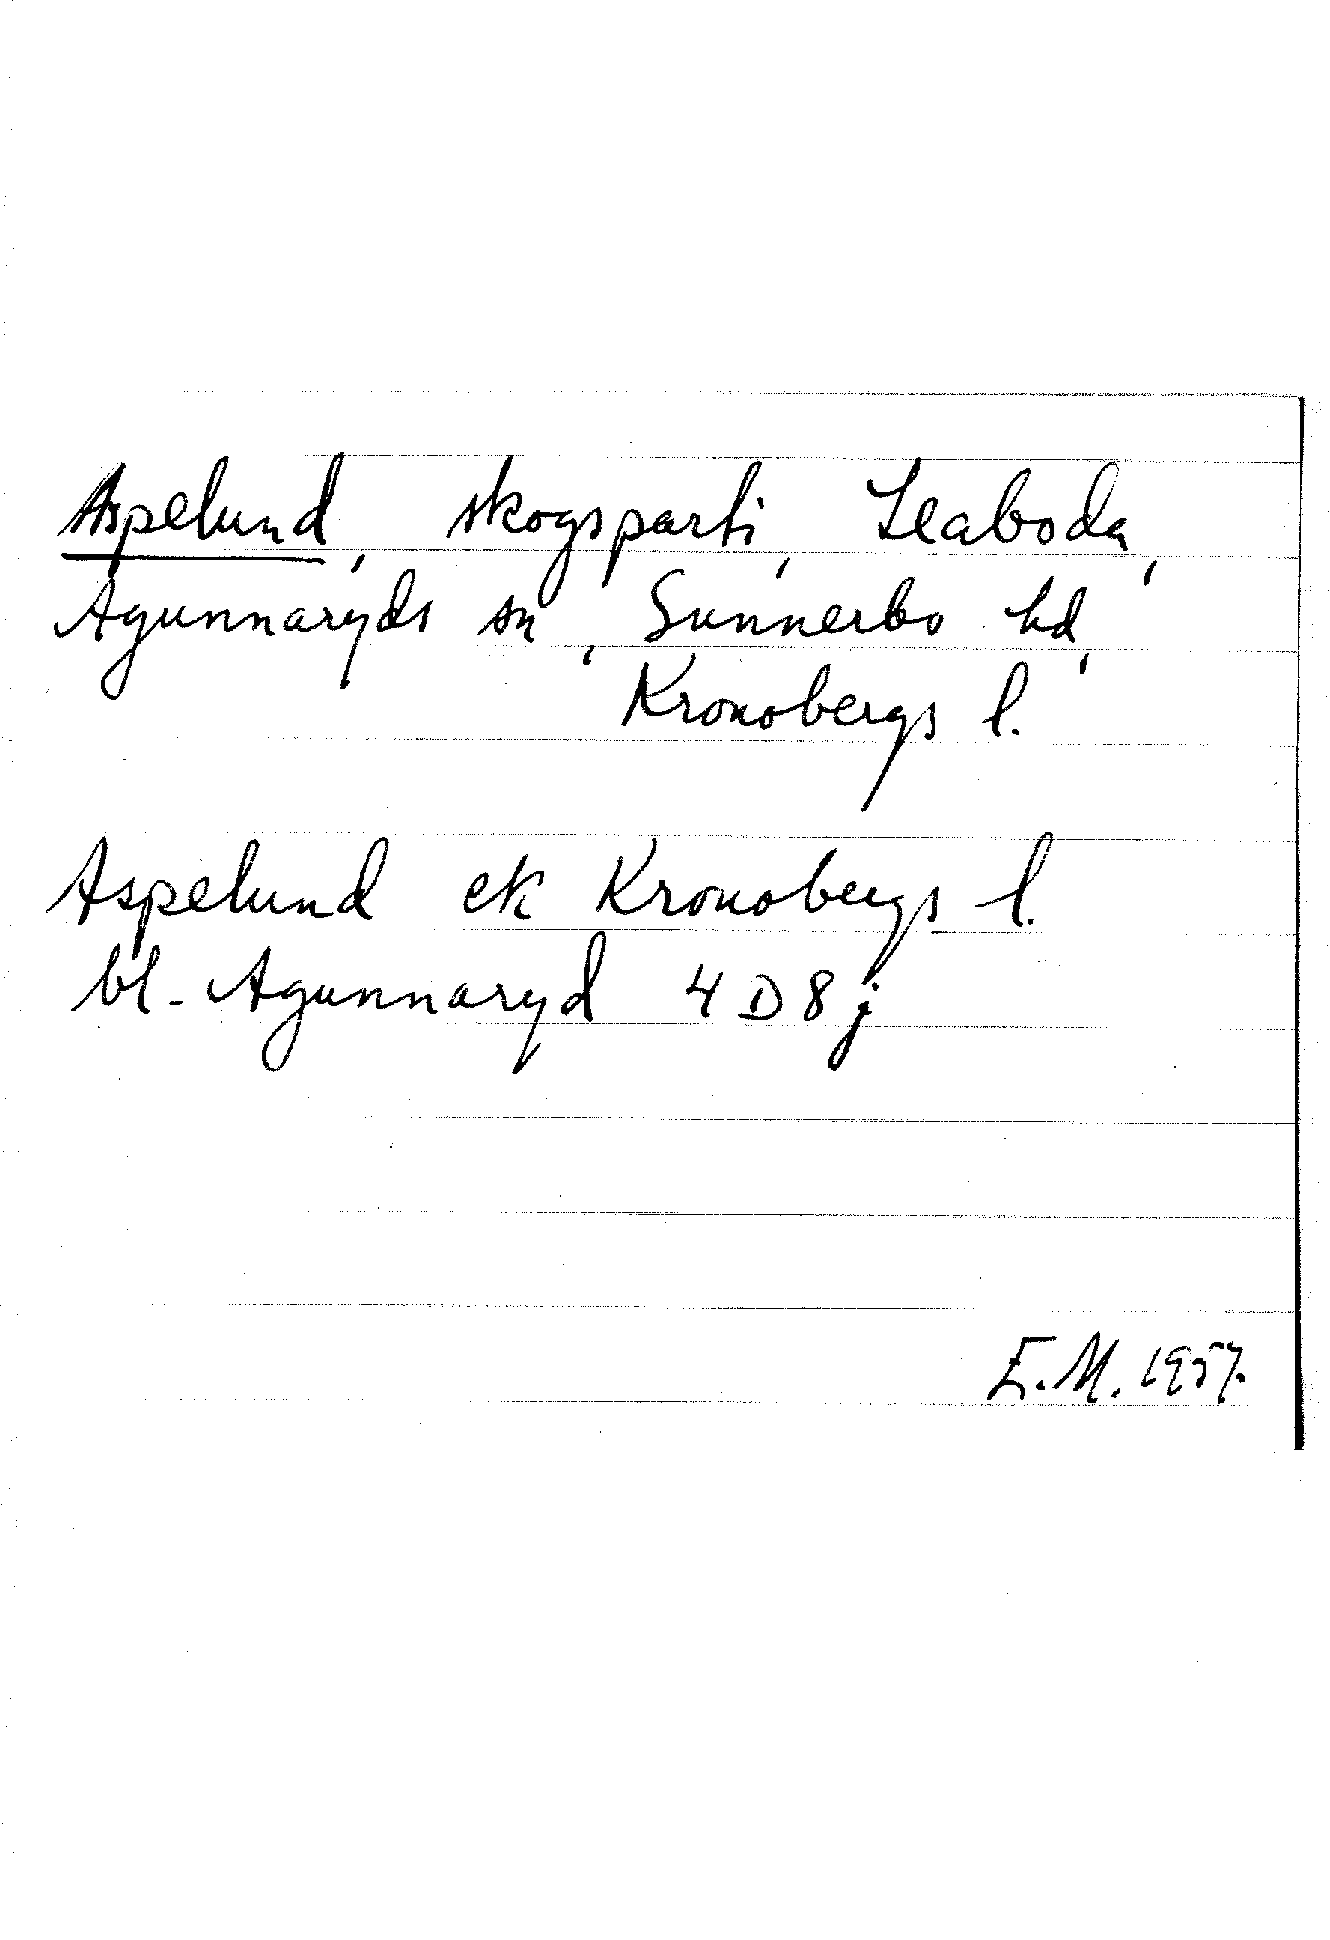 Aspelund, skogsparti, Leaboda,
Agunnaryds sn, Sunnerbo hd,
Kronobergs l.
Aspelund ek Kronobergs l.
bl. Agunnaryd 4 D 8 j
E.M. 1957.